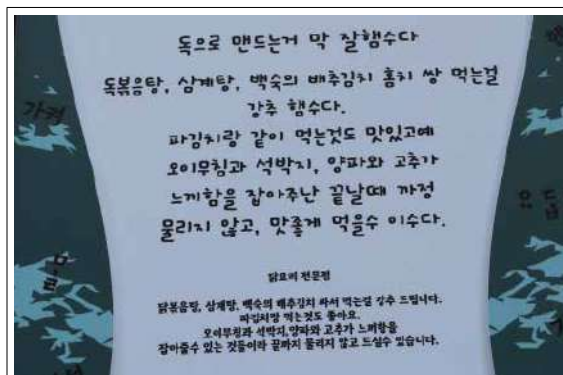 독으로 맨드는거 막 잘햄수다
독볶음탕, 삼계탕, 백숙의 배추김치 홈치 쌍 먹는걸
강추 햄수다.
파김치랑 같이 먹는것도 맛있고예
오이무침과 석박지, 양파와 고추가
느끼함을 잡아주난 끝날때 까정
물리지 않고, 맛좋게 먹을수 이수다.
닭요리 전문점
닭볶음탕, 삼계탕, 백숙의 배추김치 싸서 먹는걸 강추 드립니다.
파김치랑 먹는것도 좋아요.
오이무침과 석박지,양파와 고추가 느끼함을
잡아줄수 있는 것들이라 끝까지 물리지 않고 드실수 있습니다.
가켜